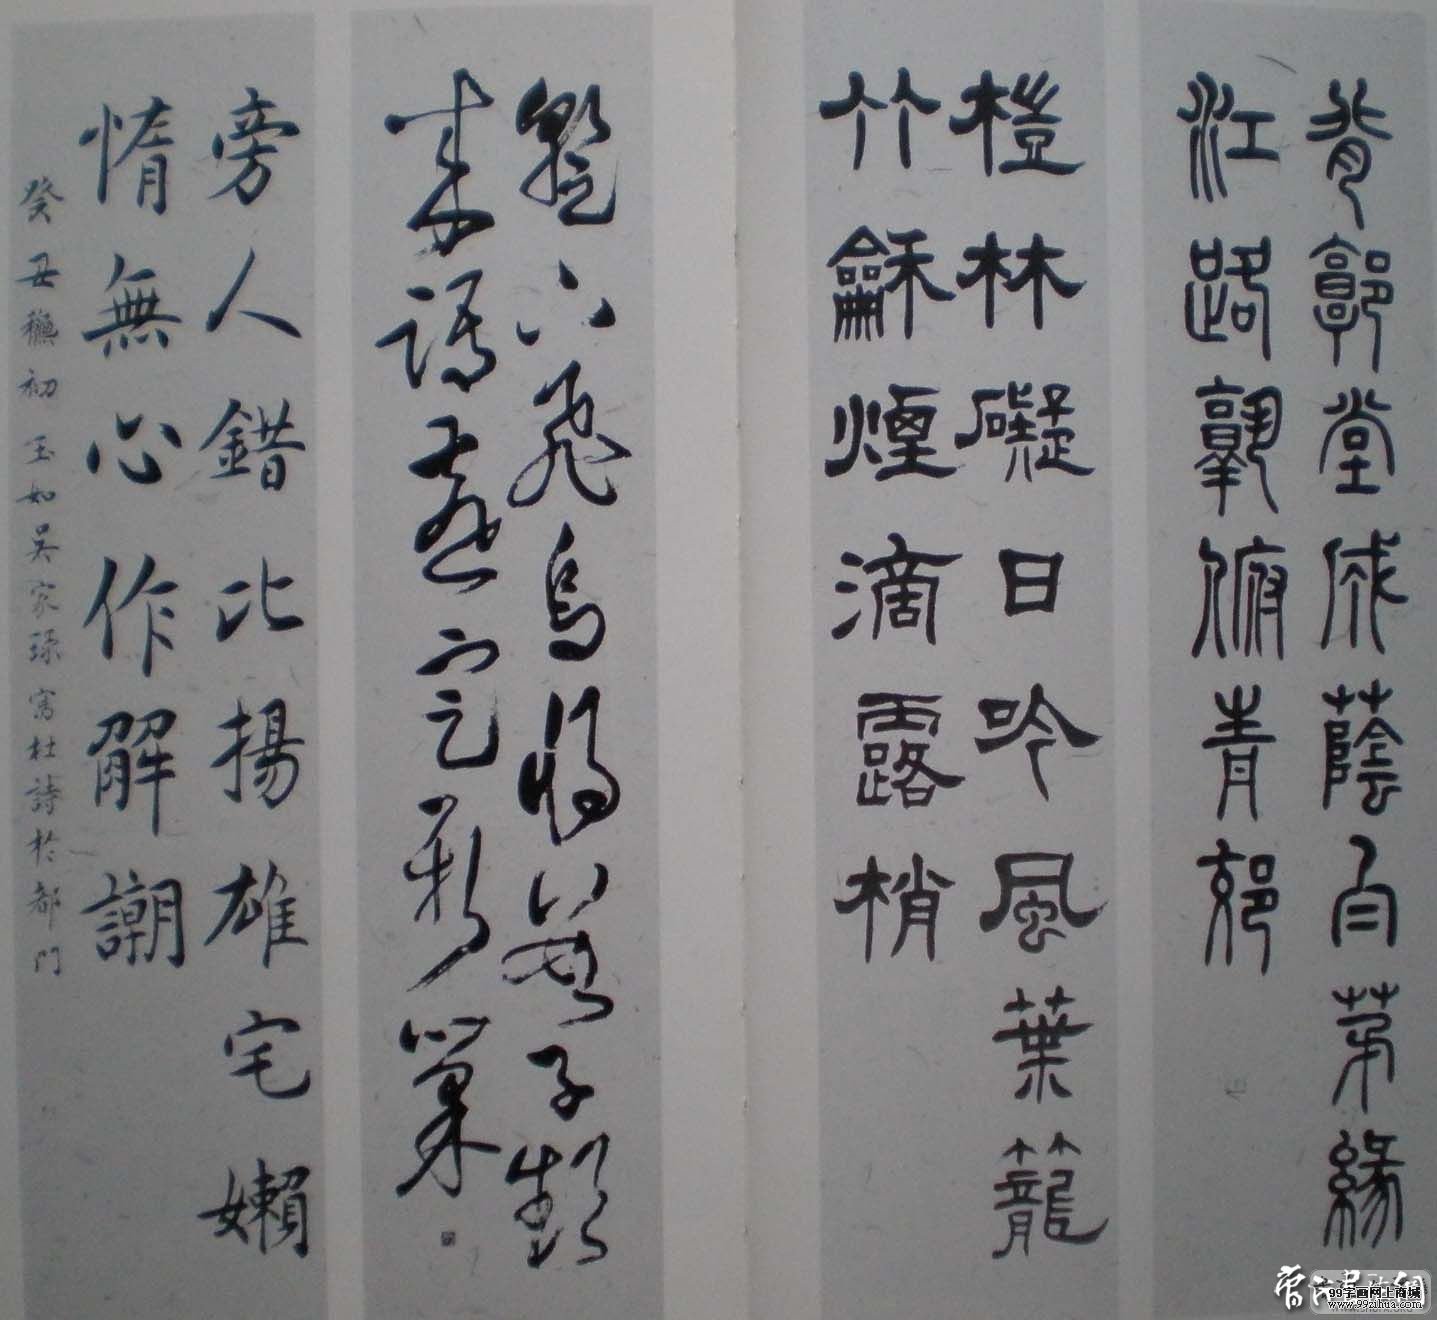 背郭堂成蔭白茅緣
江路孰俯青郊
榿林礙日吟風葉籠
竹龢煙滴露梢
蹔下飛烏將數子頻
來語燕定新巢
旁人錯比揚雄宅嬾
惰無心作解謿
癸丑穐初玉如吳家琭寫杜詩於都門
99字画网上商城
www.99zihua.com